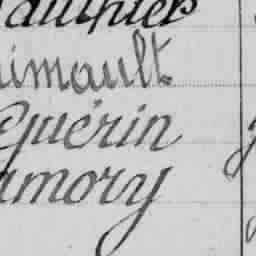 authiers
imault
Guérin
amory